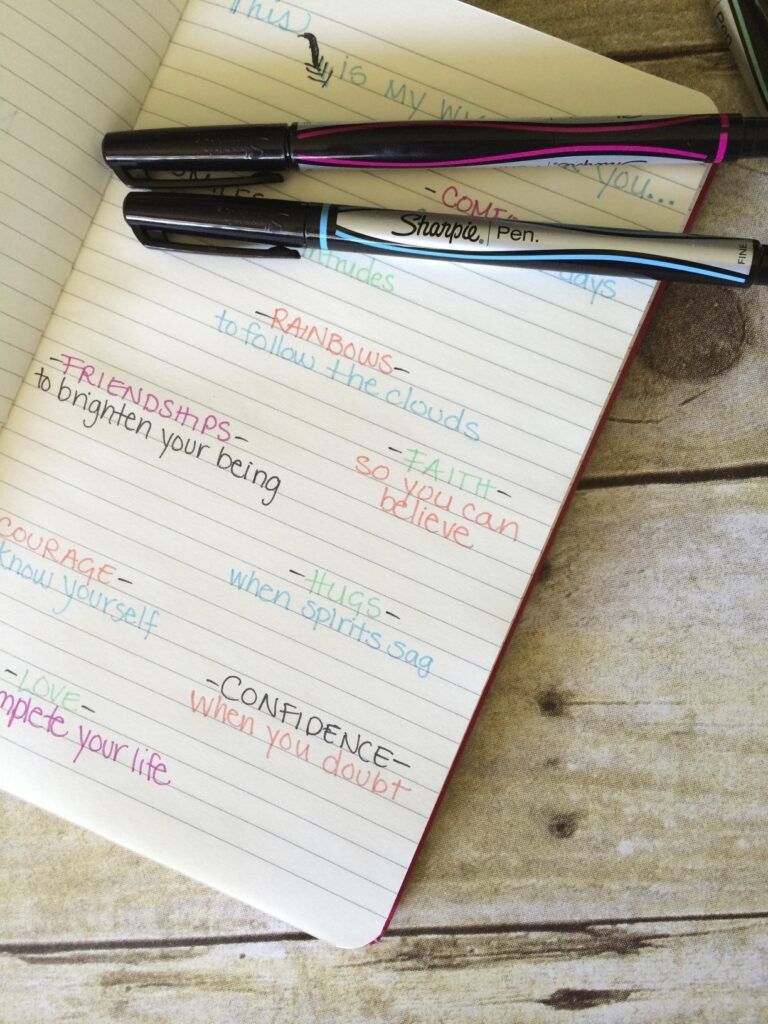 This
is MY
YOU...
Sharpie Pen. FINE
intrudes
days
-RAINBOWS-
to follow the clouds
-FRIENDSHIPS-
to brighten your being
-FAITH-
so you can
believe
COURAGE-
know yourself
-HUGS-
when spirits sag
-LOVE-
your life
-CONFIDENCE-
when you doubt